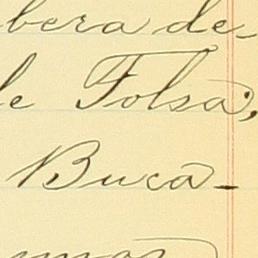 bera de-
le Folsa;
Buca-